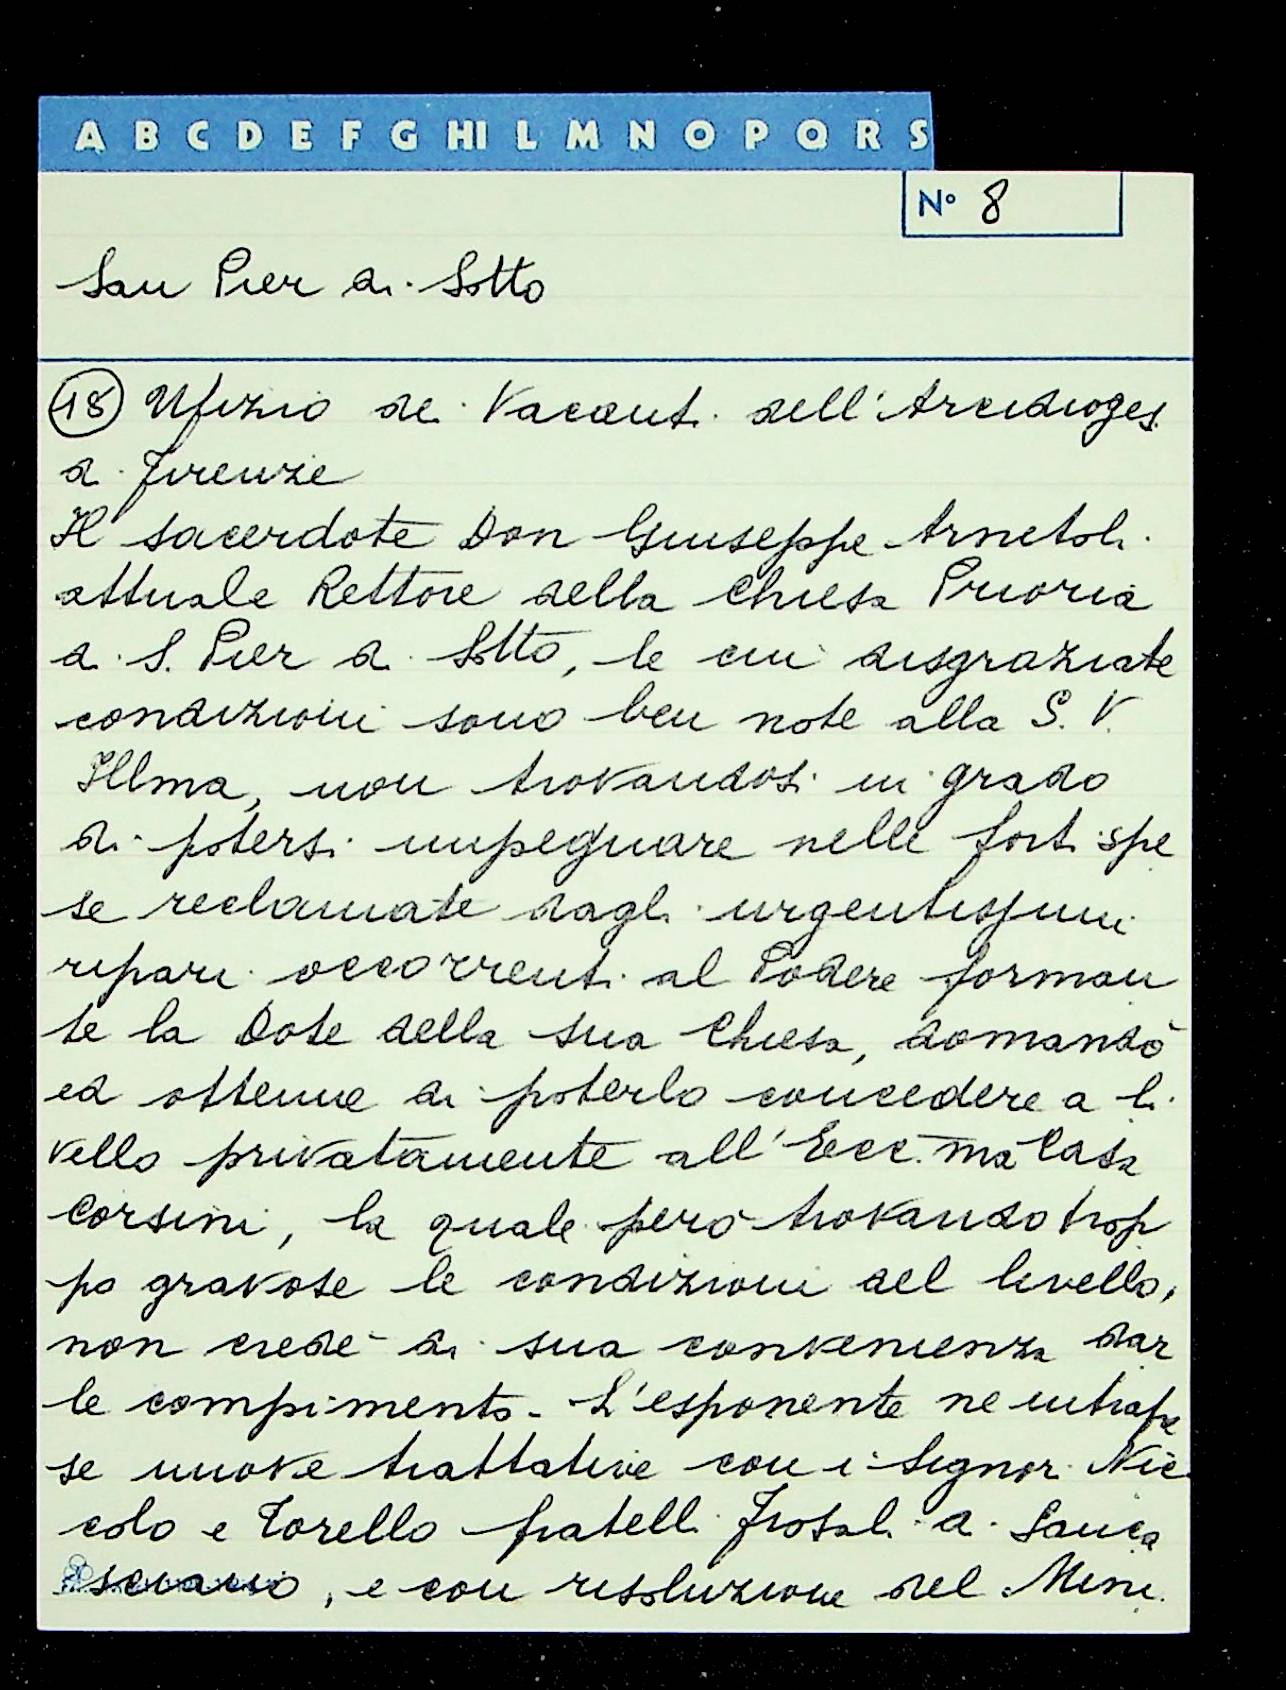 A B C D E F G HI L M N O P Q R S
N° 8
San Pier di Sotto
(18) Ufizio dei Vacanti dell'Arcidioges.
di Firenze
Il sacerdote Don Giuseppe Arnetoli
attuale Rettore della Chiesa Prioria
di S. Pier di Sotto, le cui disgraziate
condizioni sono ben note alla S. V.
Illma, non trovandosi in grado
di potersi impegnare nelle forti spe
se reclamate dagli urgentissimi
ripari occorrenti al Podere forman
te la Dote della sua Chiesa, domandò
ed ottenne di poterlo concedere a li
vello privatamente all'Ecc.ma Casa
Corsini, la quale però trovando trop
po gravose le condizioni del livello,
non credè di sua convenienza dar
le compimento. L'esponente ne intrapre
se nuove trattative con i Signori Nic
colo e Torello fratelli Frosali di Sanca
sciano, e con risoluzione del Mini